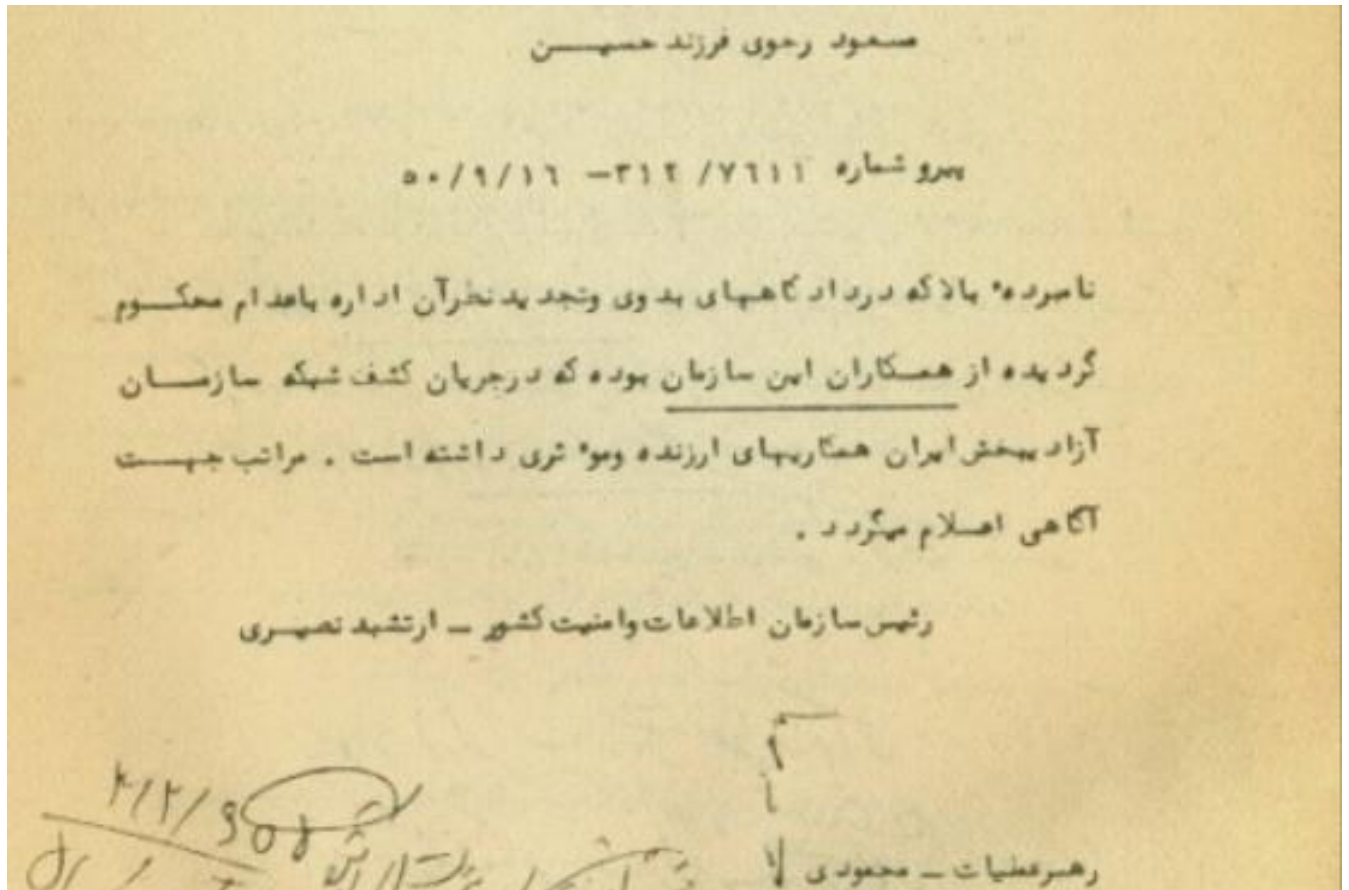 مسعود رجوی فرزند حسیـــن
پیرو شماره ۷۶۱۱/ ۳۱۲– ۵۰/۹/۱۶
نامبرده بالاکه درداد گاههای بدوی وتجدیدنظرآن اداره باعدام محکـــوم
گردیده از همـکاران این سازمان بوده که درجریان کشف شبکه سازمــــان
آزاد یبخش ایران همکاریهای ارزنده وموٴثری داشته است . مراتب جهـــت
آگاهی اعــلام میگردد .
رئیس سازمان اطلاعات وامنیت کشور – ارتشبد نصیـــری
رهبرعملیات – محمودی